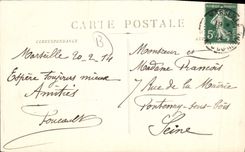 CARTE POSTALE
CORRESPONDANCE
B
Marseille 20-2-14
Espère toujours mieux
Amitiés
Foucault
5c
Monsieur et
Madame Francois
7 Rue de la Mairie
Fontenay-sous-Bois
Seine